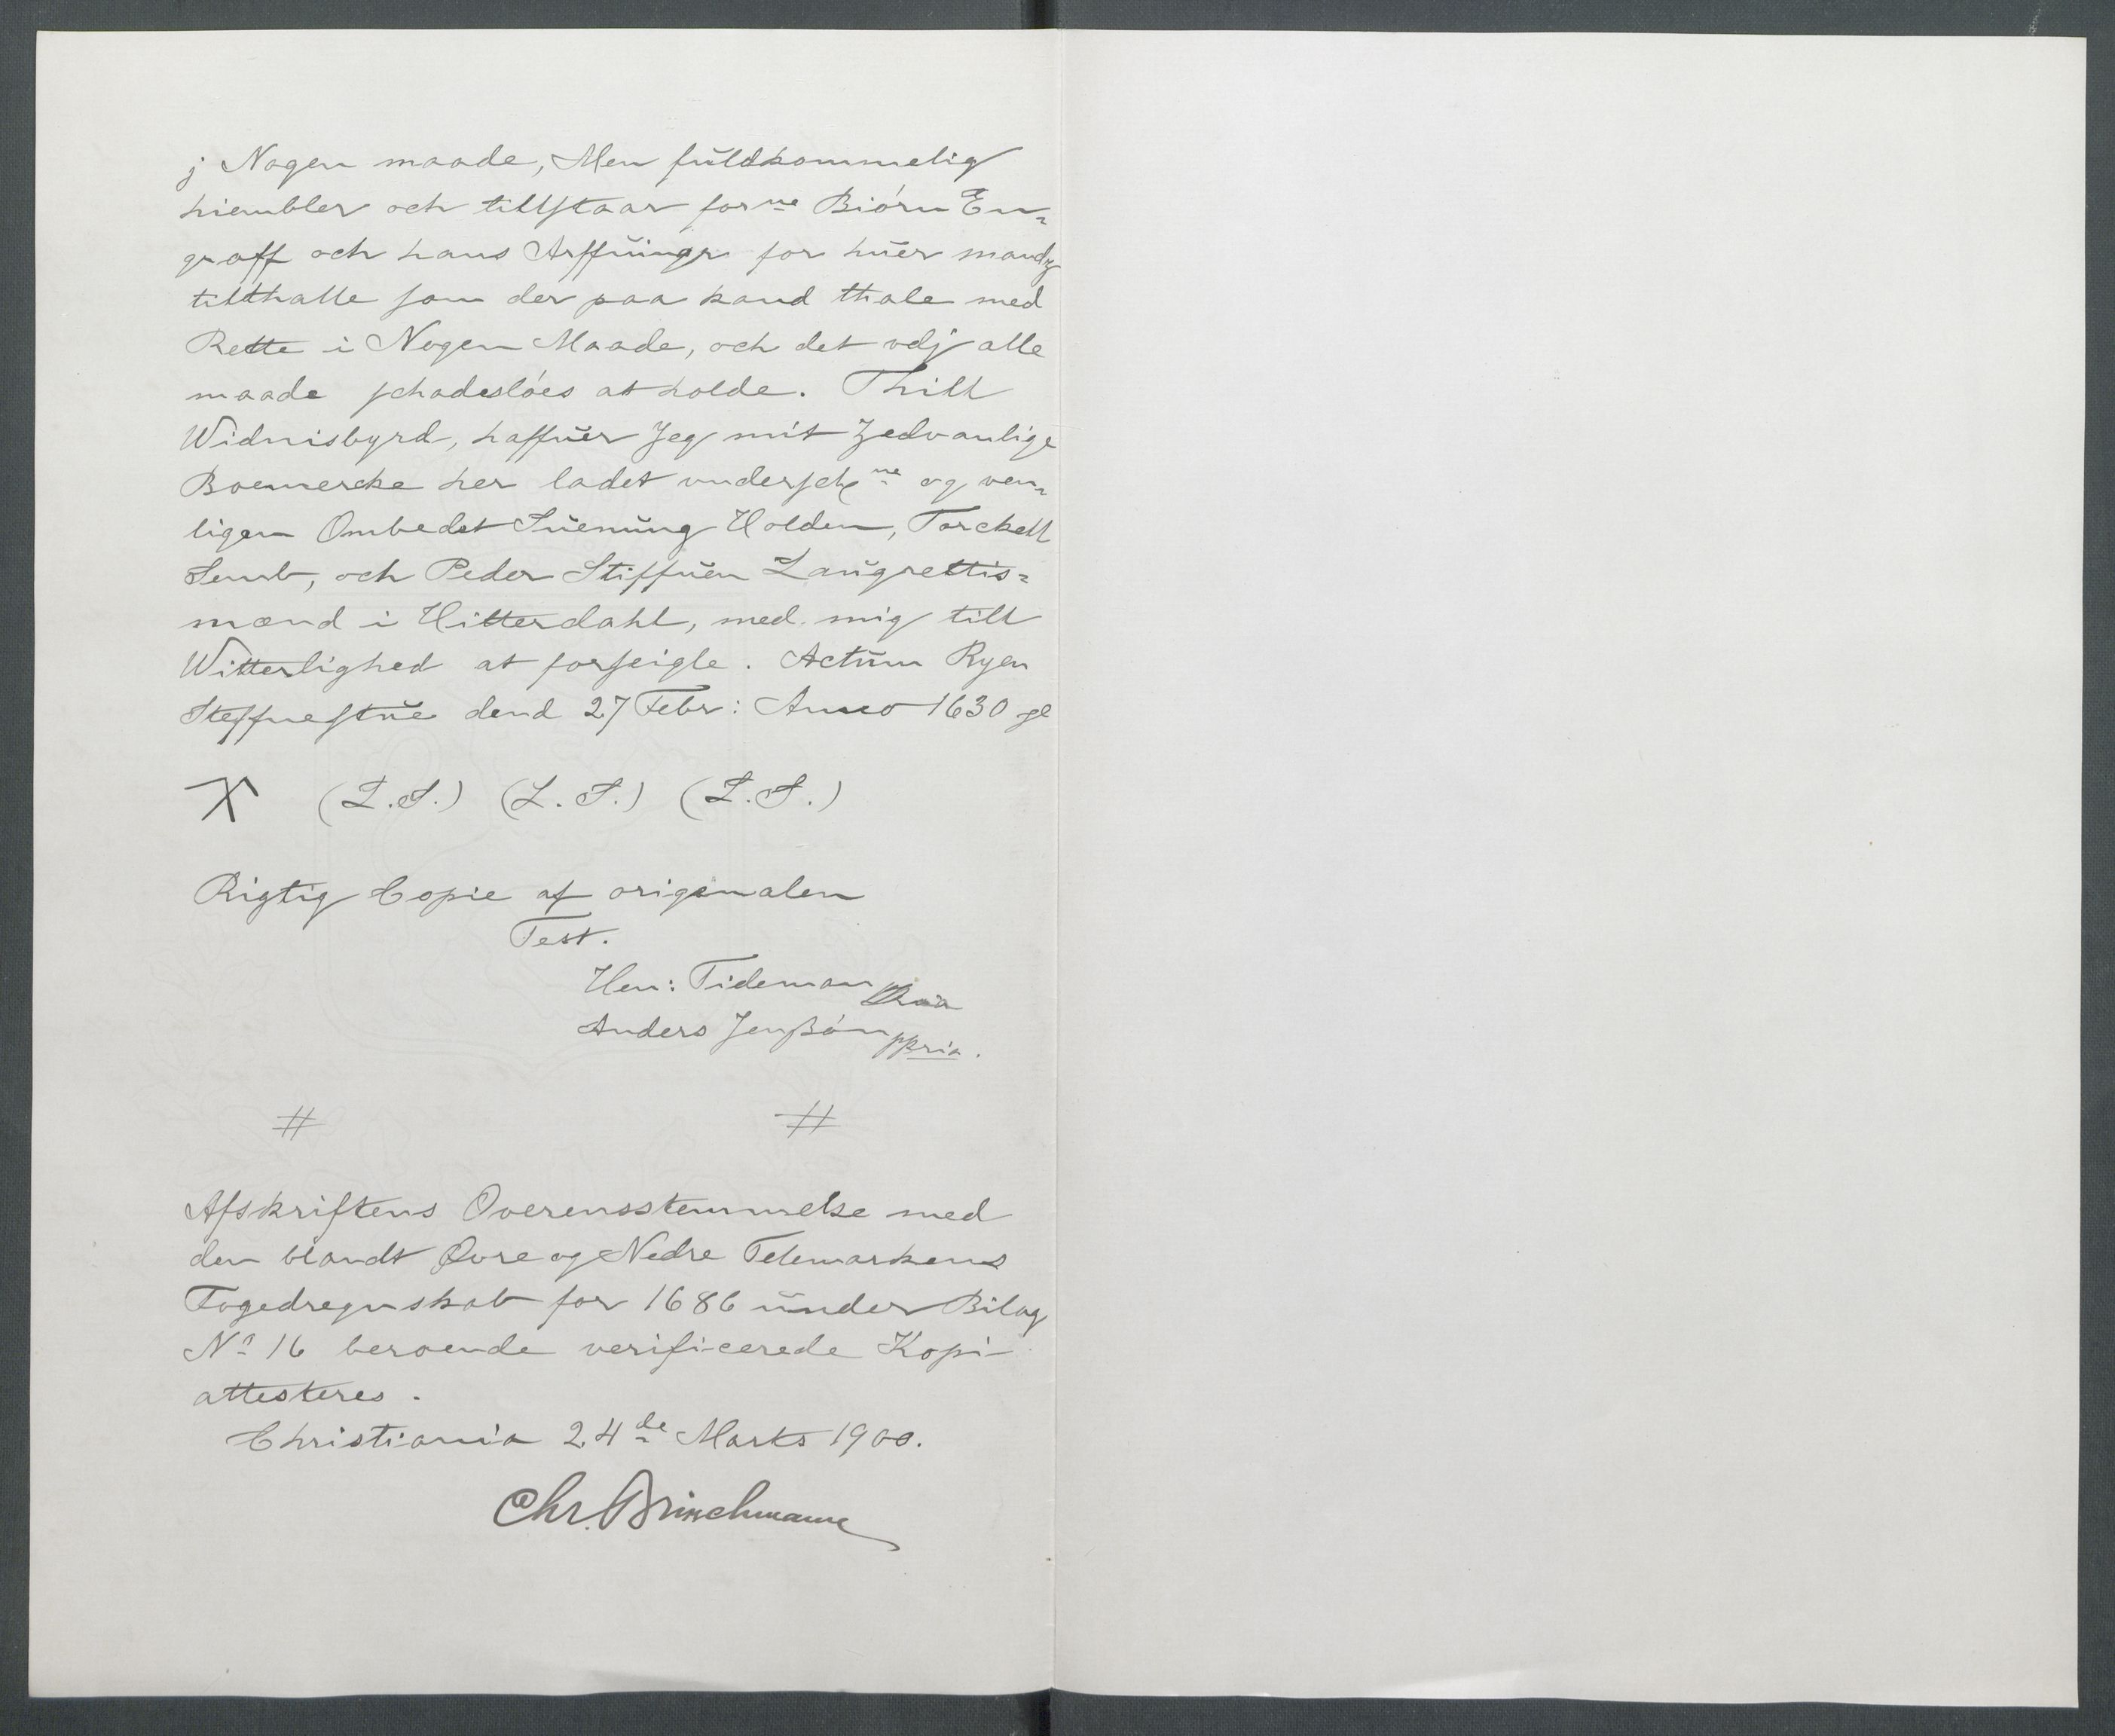 j Nogen maade, Men fuldkommelig
hiembler och tillstaar forne Biörn En-
graff och hans Arffuinger for huer mandz
tiltthalle som der paa kand thale med
Rette i Nogen Maade, och det vdj alle
maade schadeslöes at holde. Thill
Widnisbyrd, haffuer Jeg mit Zedvanlige
Boemercke her ladet undersch ne og ven-
ligen Ombedet Suenung Holden, Torckell
Semb, och Peder Stiffuen Laugrettis-
mænd i Hitterdahl, med mig till
Witterlighed at forseigle. Actum Ryen
Steffnestue dend 27 Febr: Anno 1630
X (L.S.) (L.S.) (L.S.)
Rigtig Copie af origenalen
Test.
Hen: Tideman
Anders Jenßön ppria.
# #
Afskriftens Overensstemmelse med
den blandt Øvre og Nedre Telemarkens
Fogedregnskab for 1686 under Bilag
No 16 beroende verificerede Kopi
attesteres.
Christiania 24de Marts 1900.
Chr. Brinchmann